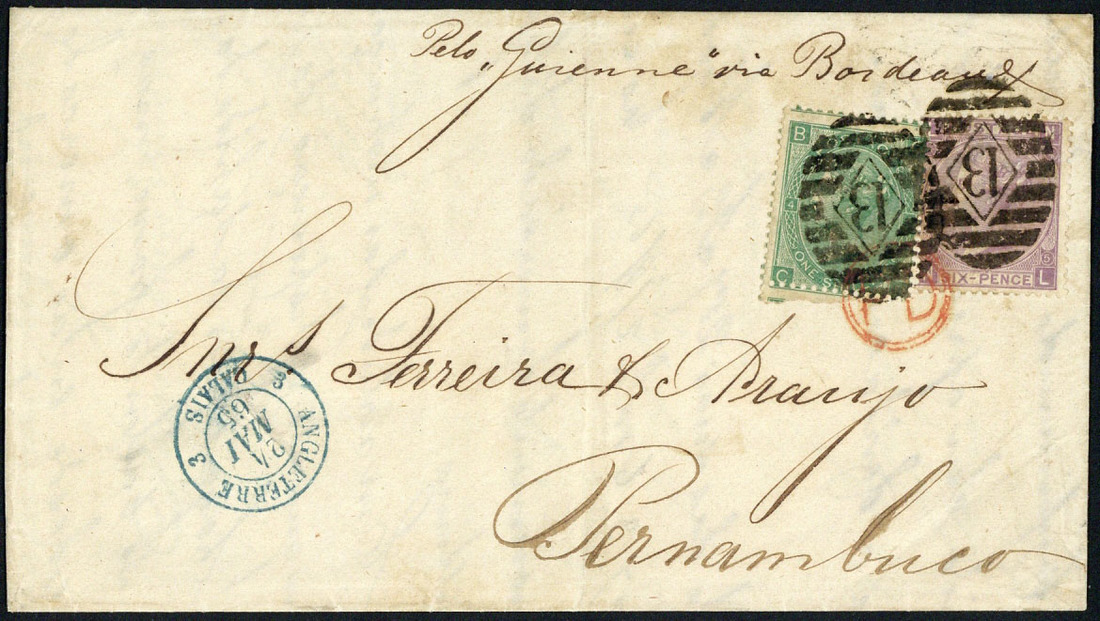 Pelo „Guienne" via Bordeaux
B
4
ONE S
C
13
13
5
SIX-PENCE
L
PD
Snrs Ferreira & Araujo
3 ANGLETERRE 3
CALAIS
2/
MAI
65
Pernambuco